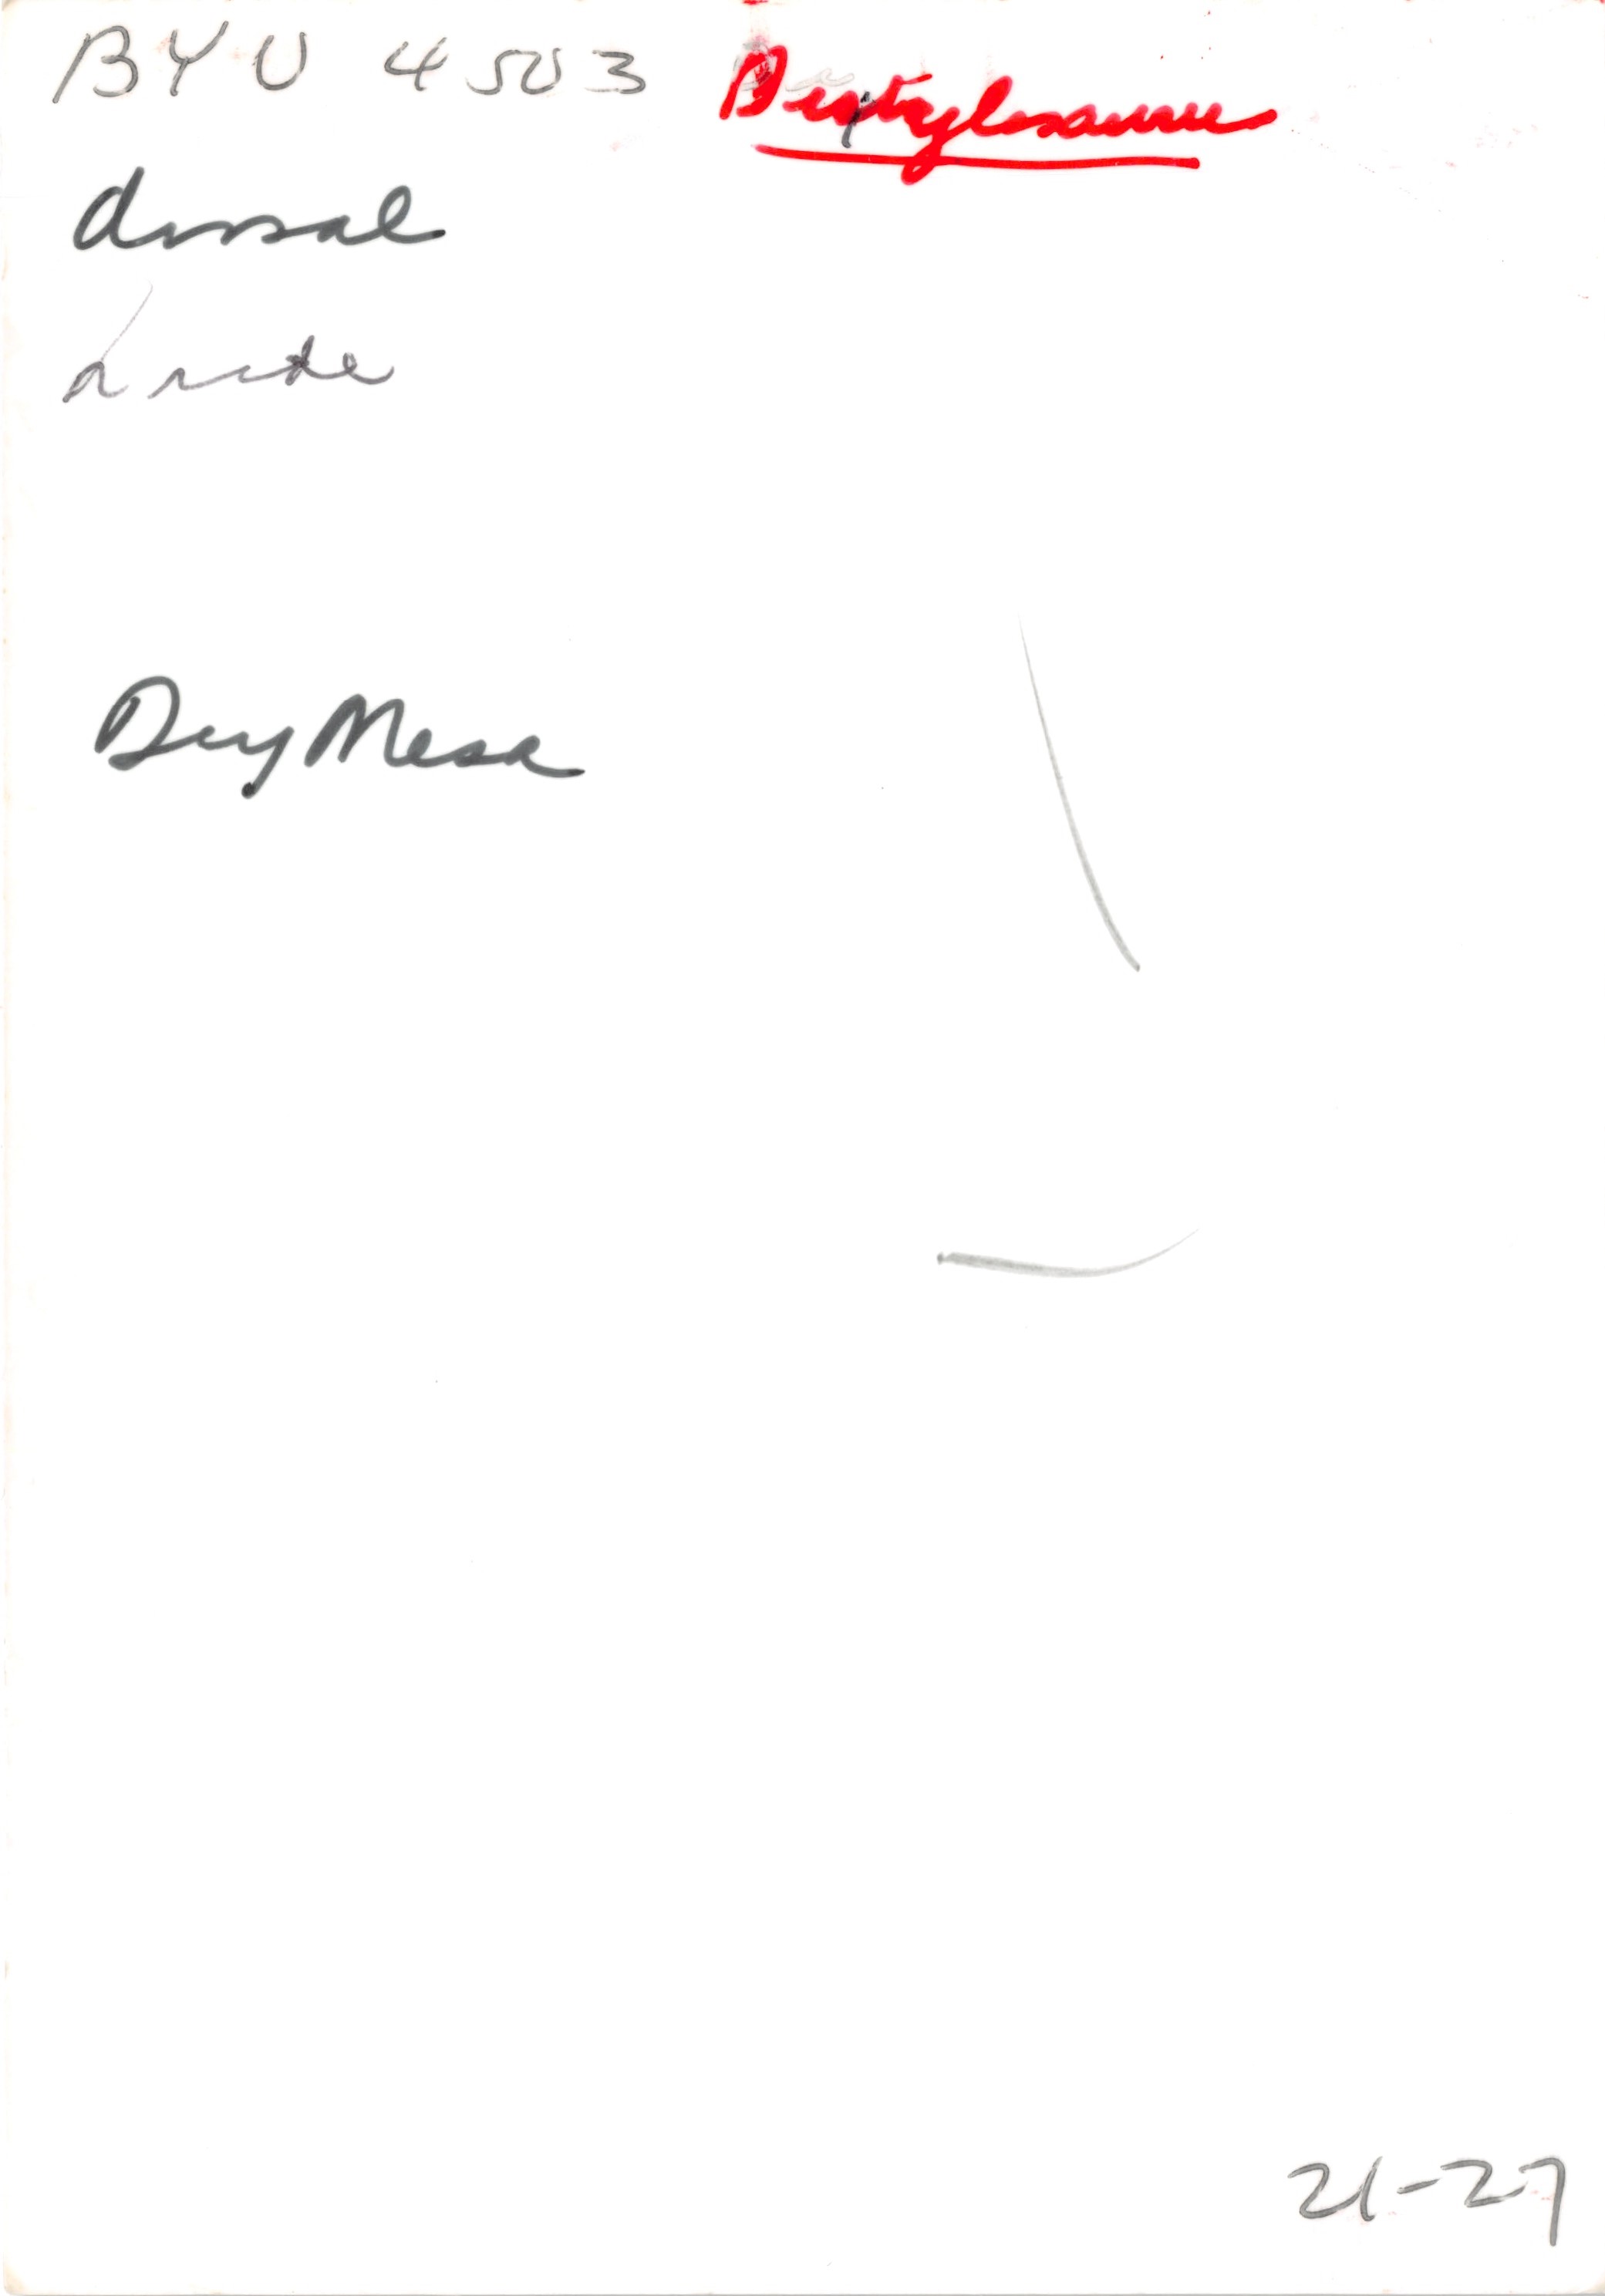 BYU 4503 Dystylosaurus
dorsal
Dry Mesa
21-27